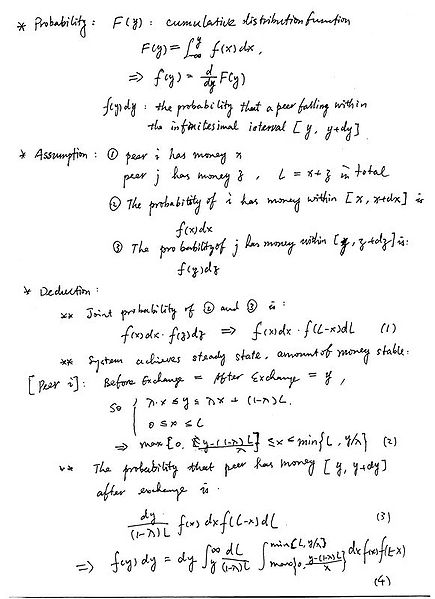 * Probability: F(y): cumulative distribution function
F(y) = ∫_{-∞}^{y} f(x)dx,
⇒ f(y) = d/dy F(y)
f(y)dy : the probability that a peer falling within
the infinitesimal interval [y, y+dy]
* Assumption: ① peer i has money x
peer j has money z, L = x+z in total
② The probability of i has money within [x, x+dx] is
f(x)dx
③ The probability of j has money within [z, z+dz] is:
f(z)dz
* Deduction:
** Joint probability of ② and ③ is:
f(x)dx · f(z)dz ⇒ f(x)dx · f(L-x)dL (1)
** System achieves steady state, amount of money stable:
[Peer i]: Before Exchange = After Exchange = y,
so { λ·x ≤ y ≤ λx + (1-λ)L.
0 ≤ x ≤ L
⇒ max{0, (y-(1-λ)L)/λ} ≤ x ≤ min{L, y/λ} (2)
** The probability that peer has money [y, y+dy]
after exchange is.
dy/((1-λ)L) f(x)dx f(L-x)dL (3)
⇒ f(y)dy = dy ∫_{y}^{∞} dL/((1-λ)L) ∫_{max{0, (y-(1-λ)L)/λ}}^{min{L, y/λ}} dx f(x) f(L-x)
(4)